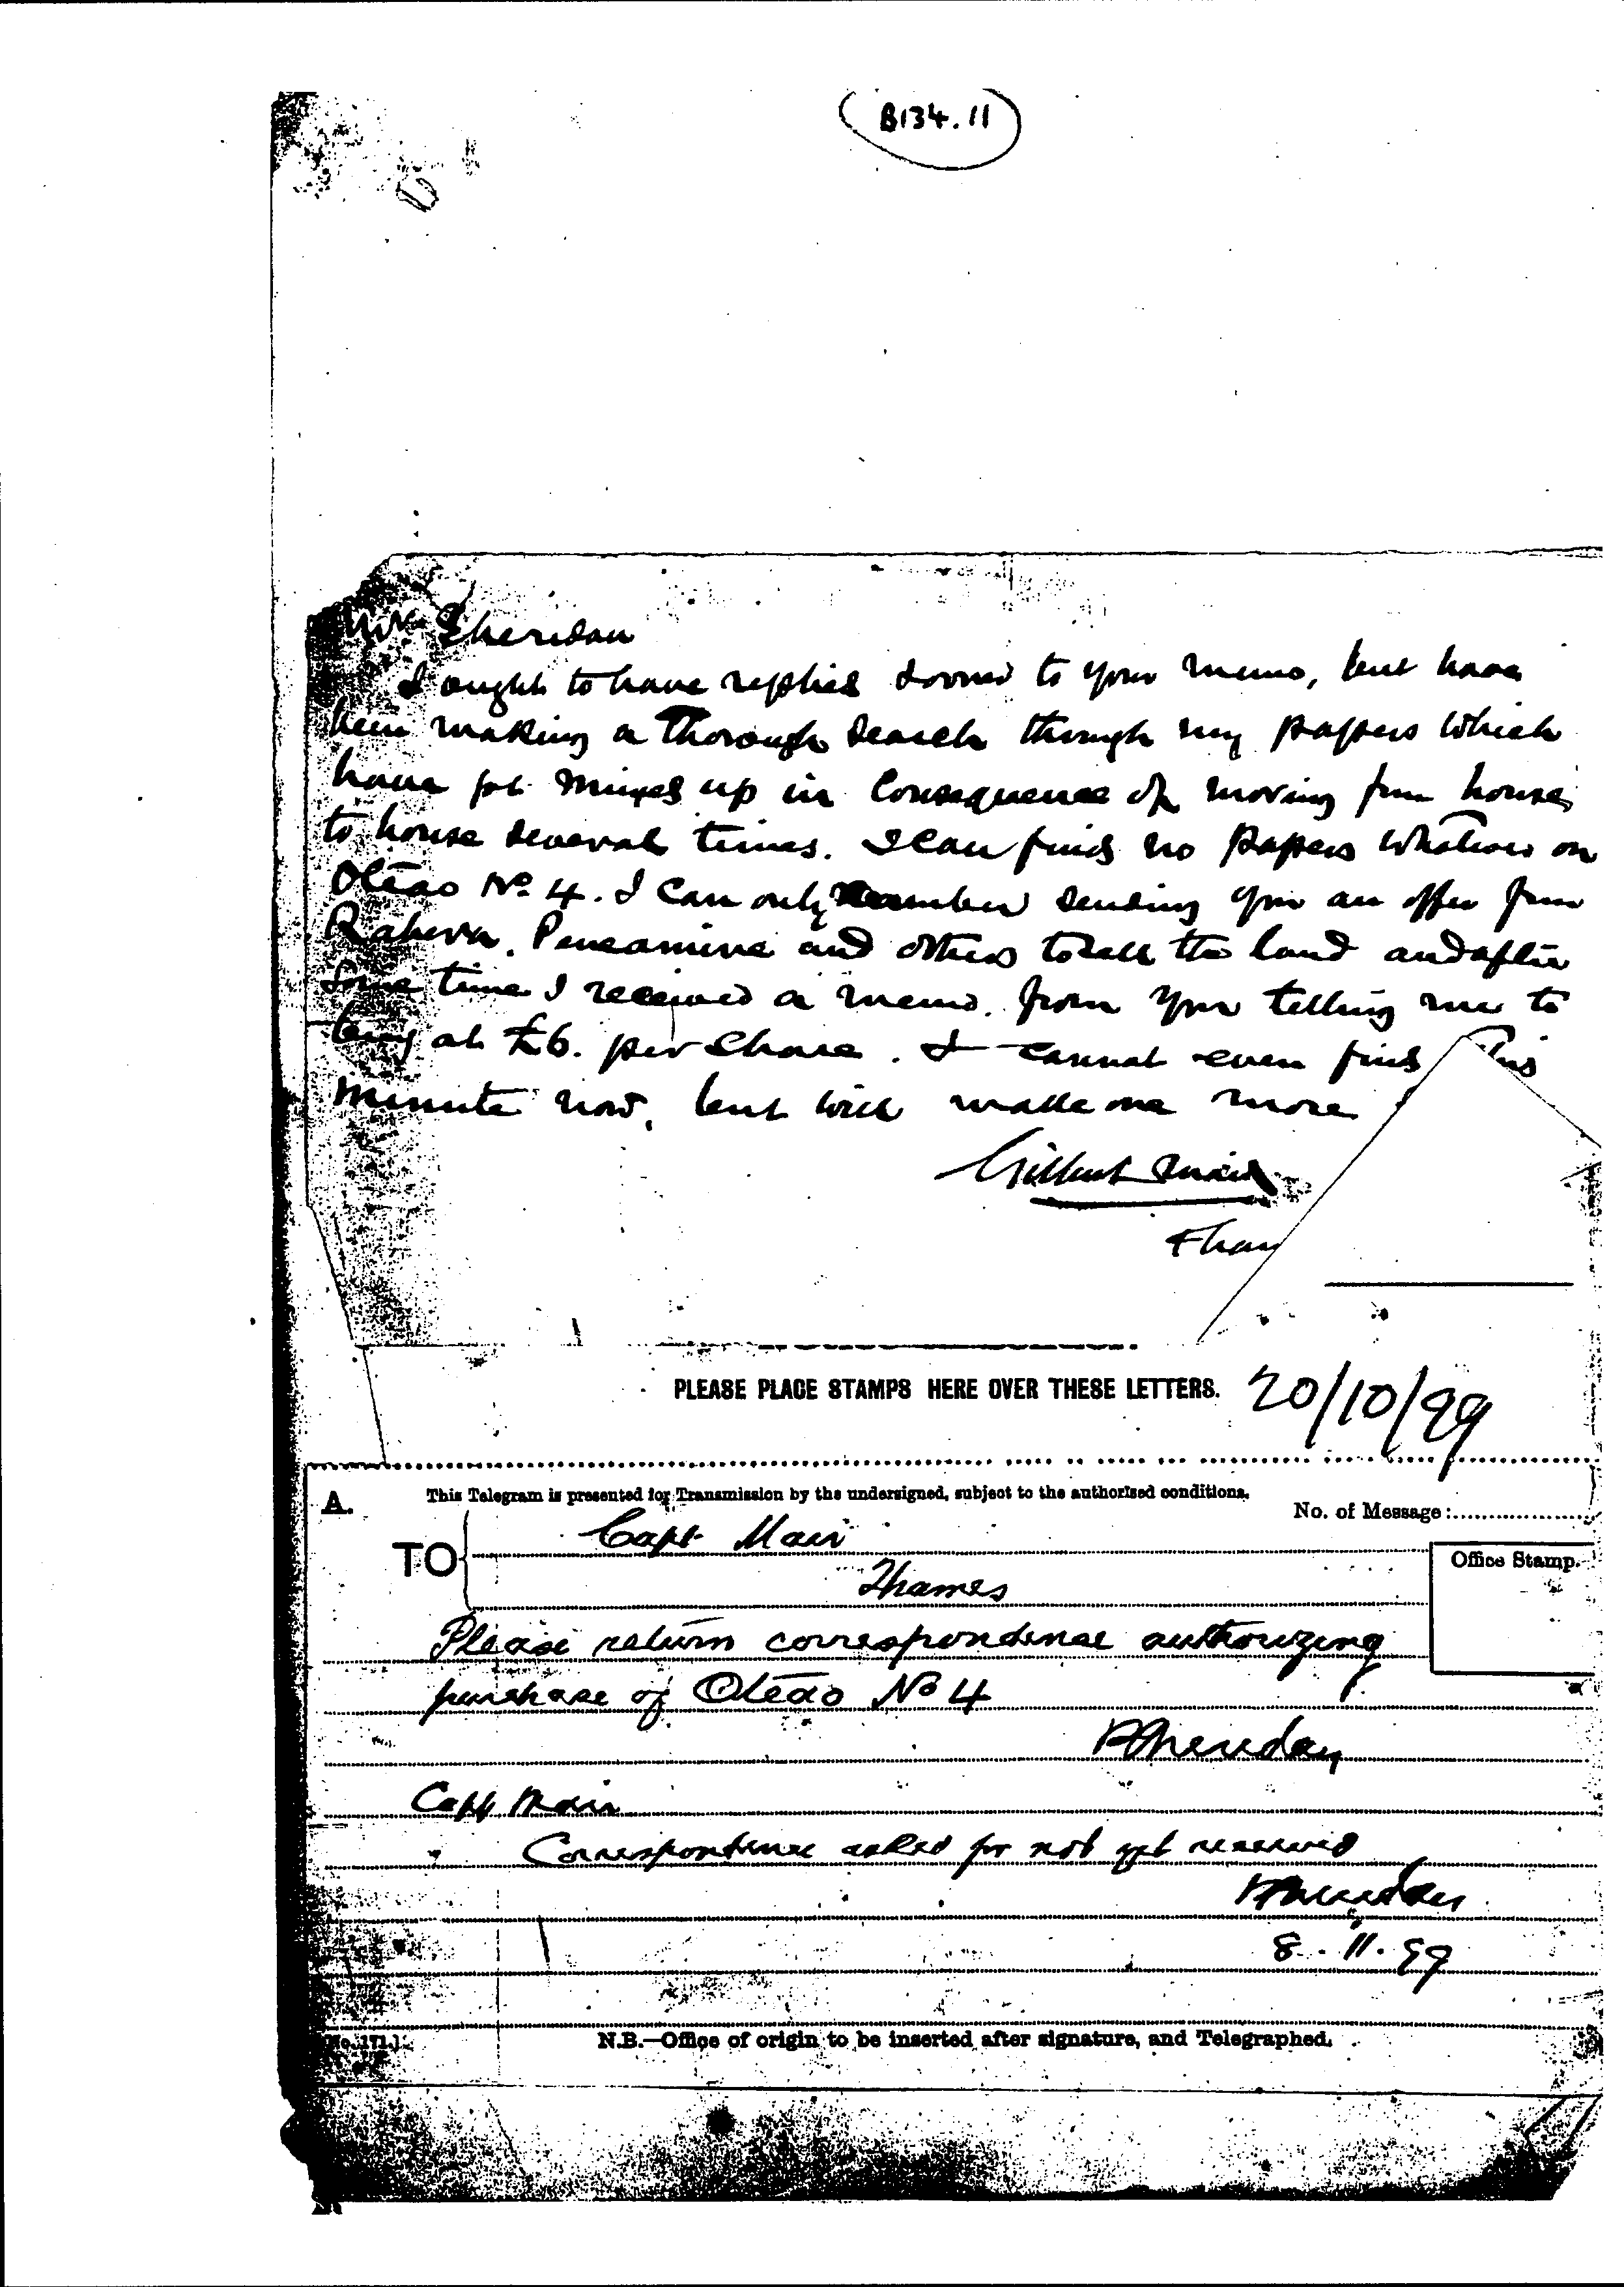 B134.11
Mr Sheridan
I ought to have replied sooner to your memo, but have
been making a thorough search through my papers which
have got mixed up in consequence of moving from house
to house several times. I can find no papers whatever on
Oteao No. 4. I can only remember sending you an offer from
and others to sell the land and after
some time I received a memo. from you telling me to
buy at £6. per share. I cannot even find this
minute now, but will make one more
Gilbert Mair
Tham
PLEASE PLACE STAMPS HERE OVER THESE LETTERS. 20/10/99
A. This Telegram is presented for Transmission by the undersigned, subject to the authorised conditions.
No. of Message:
TO Capt Mair
Office Stamp.
Thames
Please return correspondence authorizing
purchase of Oteao No 4
P Sheridan
Capt Mair
Correspondence asked for not yet received
P Sheridan
8.11.99
N.B.—Office of origin to be inserted after signature, and Telegraphed.